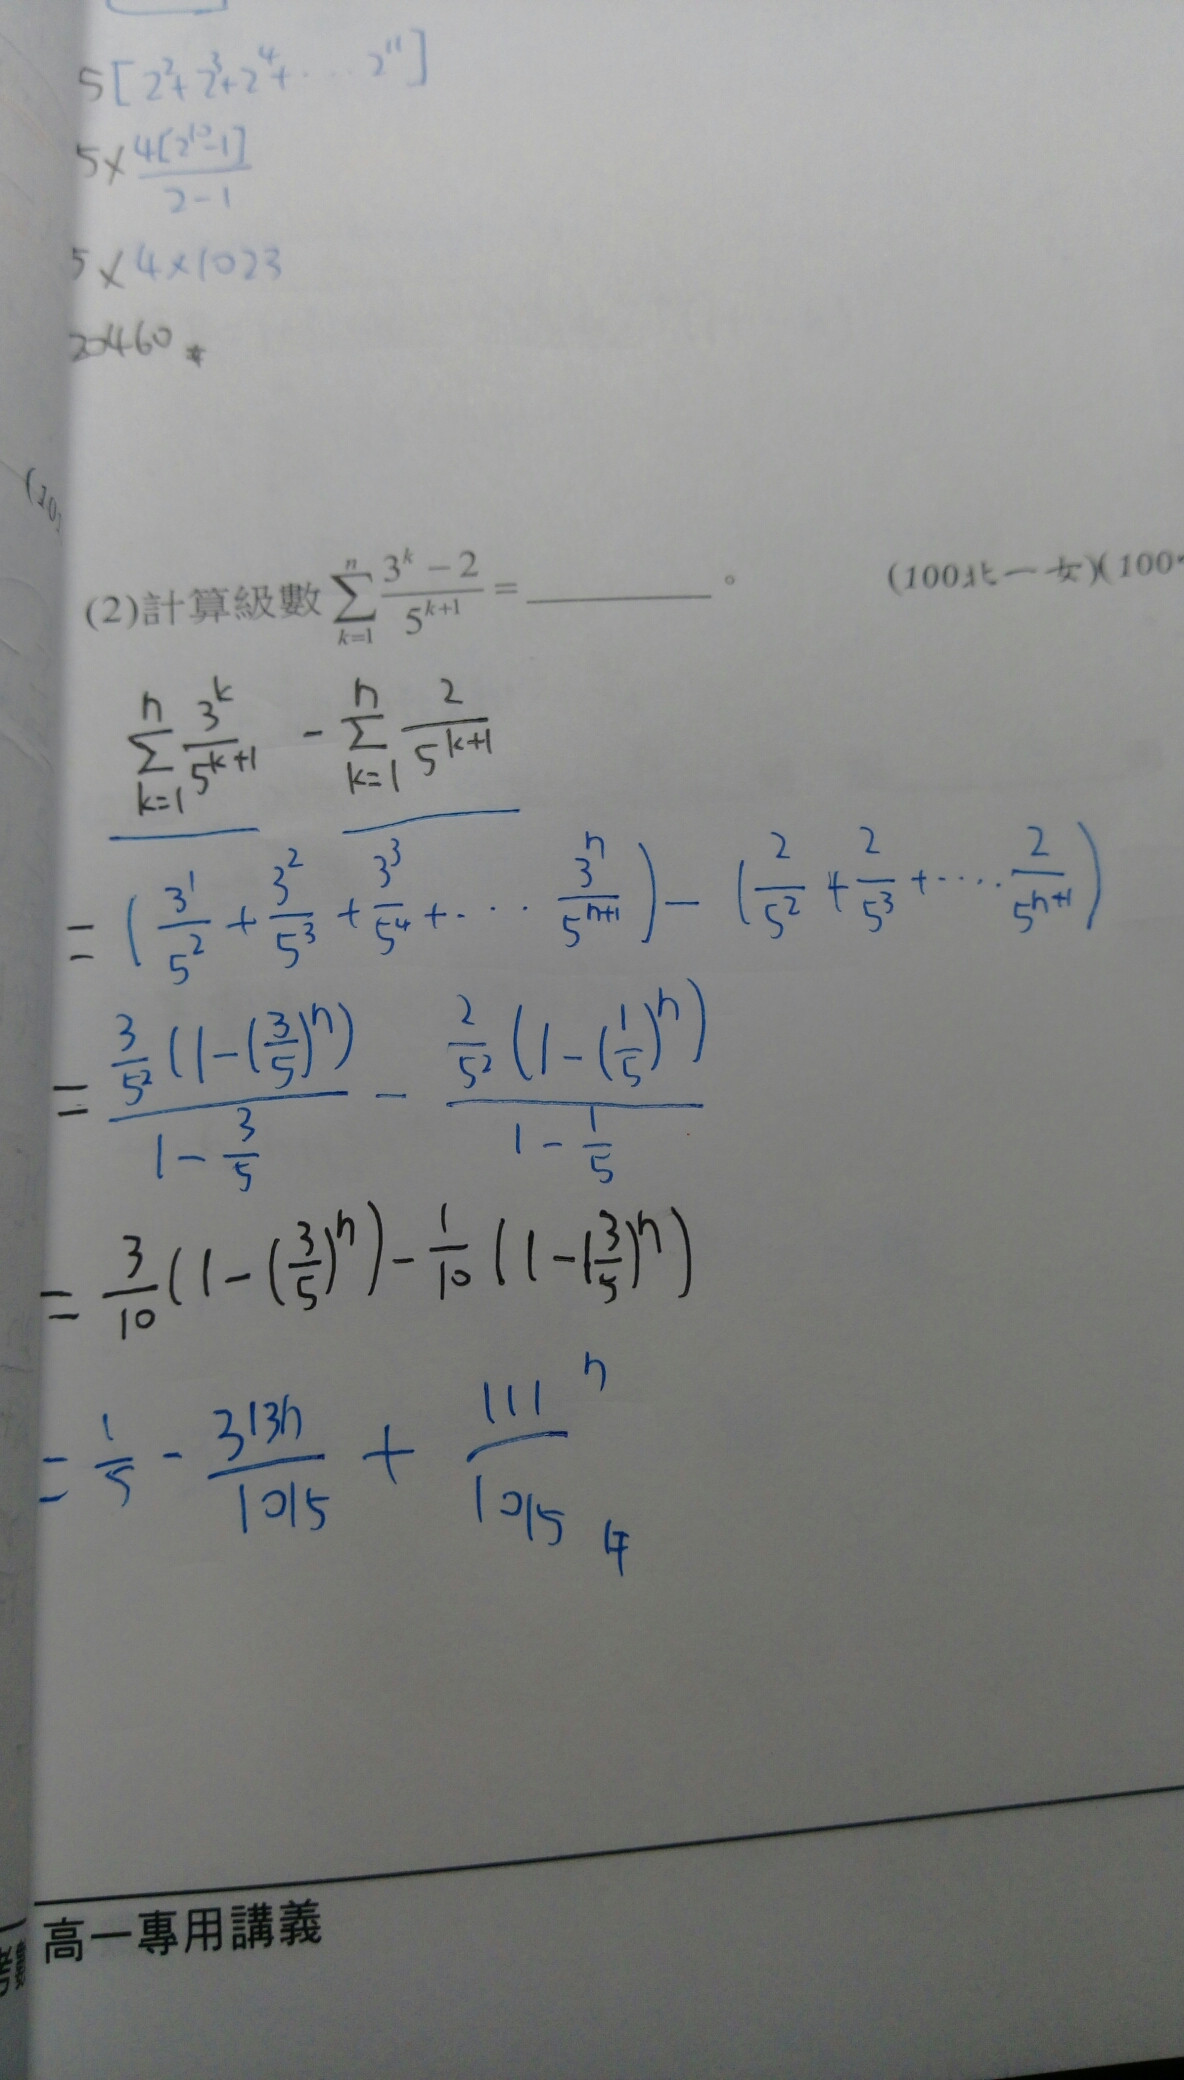 5[2²+2³+2⁴+⋯2¹¹]
5×4[2¹⁰-1]/(2-1)
5×4×1023
20460
(101
(2)計算級數 ∑_{k=1}^{n} (3^k-2)/5^{k+1} = ________ 。 (100北一女)(100
∑_{k=1}^{n} 3^k/5^{k+1} - ∑_{k=1}^{n} 2/5^{k+1}
= (3¹/5² + 3²/5³ + 3³/5⁴ +⋯ 3^n/5^{n+1}) - (2/5² + 2/5³ +⋯ 2/5^{n+1})
= (3/5²)(1-(3/5)^n)/(1-3/5) - (2/5²)(1-(1/5)^n)/(1-1/5)
= 3/10(1-(3/5)^n) - 1/10(1-(3/5)^n)
= 1/5 - 3|3n/10|5 + 1|1|^n/10|5
高一專用講義